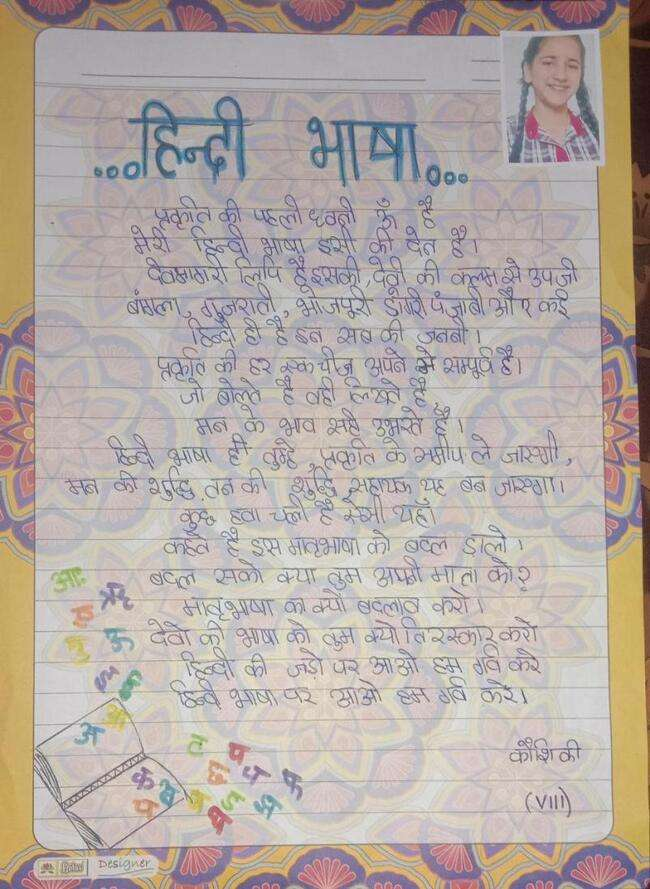 ...हिन्दी भाषा...
प्रकृति की पहली ध्वनी ॐ है
मेरी हिन्दी भाषा इसी की देन है।
देवनागरी लिपि है इसकी, देवों की कलम से उपजी
बंगला, गुजराती, भोजपुरी डोगरी पंजाबी और कई
हिन्दी ही है इन सब की जननी।
प्रकृति की हर एक चीज अपने में सम्पूर्ण है।
जो बोलते है वही लिखते है
मन के भाव सही उभरते है।
हिन्दी भाषा ही तुम्हे प्रकृति के समीप ले जाएगी,
मन की शुद्धि, तन की शुद्धि सहायक यह बन जाएगी।
कुछ हवा चली है ऐसी यहाँ
कहते है इस मातृभाषा को बदल डालो।
बदल सको क्या तुम अपनी माता को?
मातृभाषा का क्यों बदलाव करो।
देवों की भाषा को तुम क्यों तिरस्कार करो
हिन्दी की जड़ो पर आओ हम गर्व करे
हिन्दी भाषा पर आओ हम गर्व करे।
कौशिकी
(VIII)
आः
ऋ
अ
क
Designer